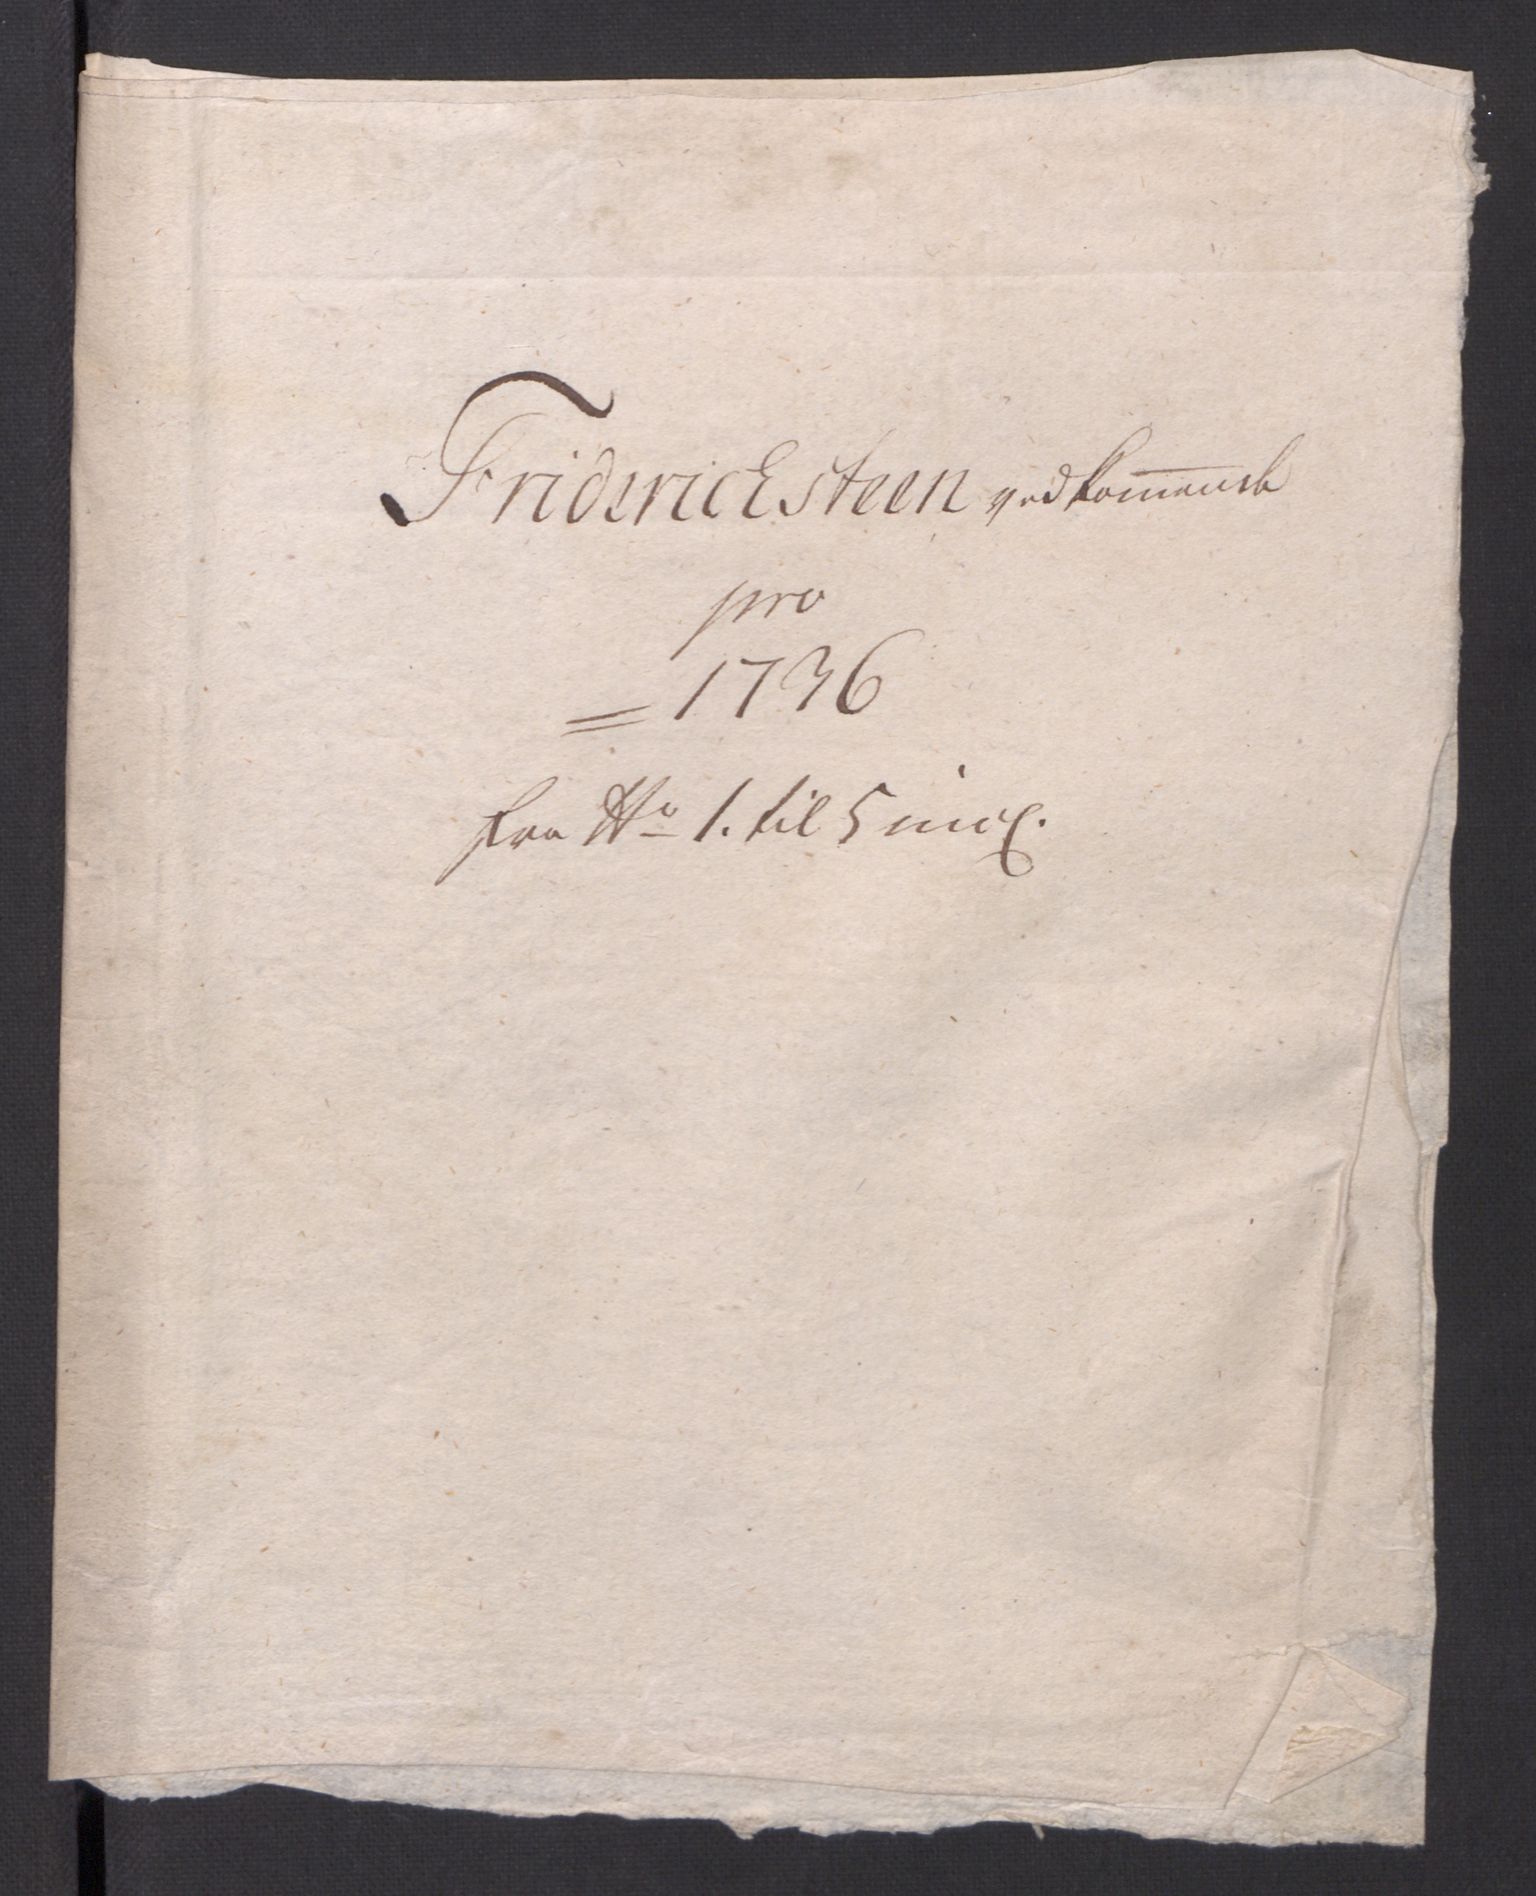 Friderichsteen vedkom̅ende
pro
= 1736
fra No 1. til 5 incl.